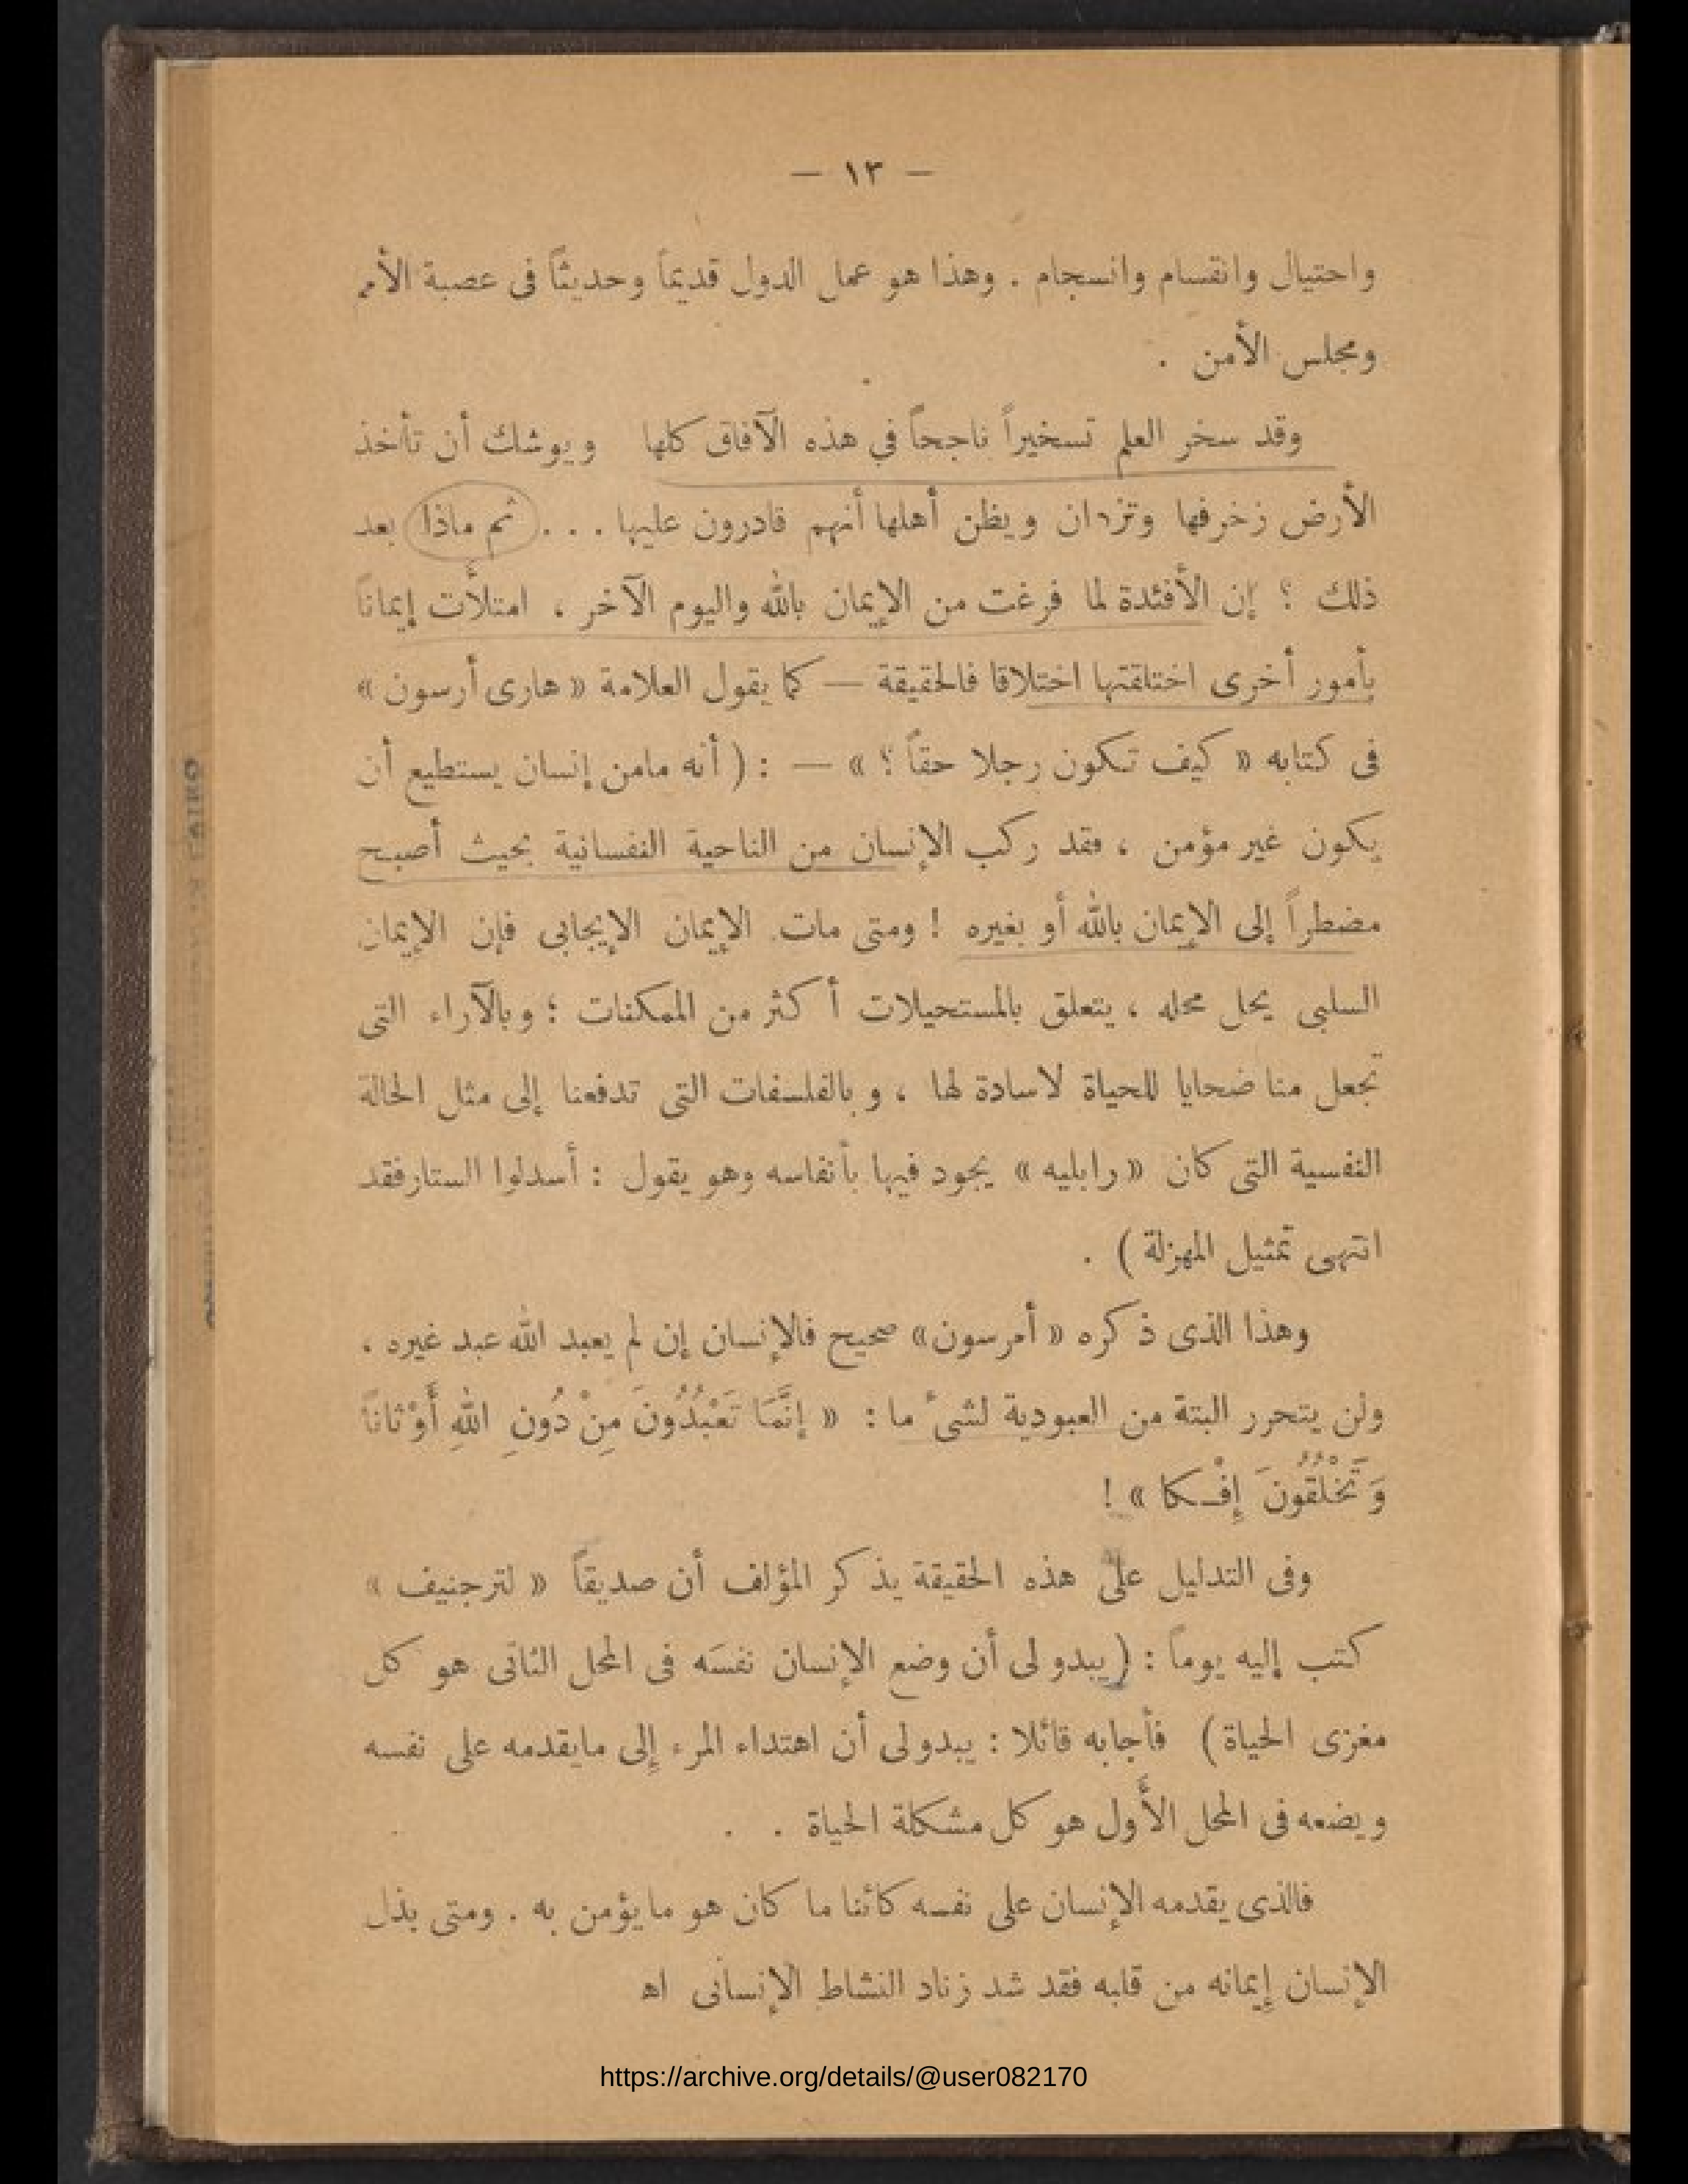 — ١٣ —
واحتيال وانقسام وانسجام . وهذا هو عمل الدول قديماً وحديثاً فى عصبة الأمم
ومجلس الأمن .
وقد سخر العلم تسخيراً ناجحاً في هذه الآفاق كلها ويوشك أن تأخذ
الأرض زخرفها وتزدان ويظن أهلها أنهم قادرون عليها . . . ثم ماذا بعد
ذلك ؟ إن الأفئدة لما فرغت من الإيمان بالله واليوم الآخر ، امتلأت إيماناً
بأمور أخرى اختلقتها اختلاقا فالحقيقة — كما يقول العلامة « هارى أرسون »
فى كتابه « كيف تكون رجلا حقاً ؟ » — : ( أنه مامن إنسان يستطيع أن
يكون غير مؤمن ، فقد ركب الإنسان من الناحية النفسانية بحيث أصبح
مضطراً إلى الإيمان بالله أو بغيره ! ومتى مات الإيمان الإيجابى فإن الإيمان
السلبى يحل محله ، يتعلق بالمستحيلات أكثر من الممكنات ؛ وبالآراء التى
تجعل منا ضحايا للحياة لاسادة لها ، وبالفلسفات التى تدفعنا إلى مثل الحالة
النفسية التى كان « رابليه » يجود فيها بأنفاسه وهو يقول : أسدلوا الستار فقد
انتهى تمثيل المهزلة ) .
وهذا الذى ذكره « أمرسون » صحيح فالإنسان إن لم يعبد الله عبد غيره ،
ولن يتحرر البتة من العبودية لشئ ما : « إِنَّمَا تَعْبُدُونَ مِنْ دُونِ اللهِ أَوْثاناً
وَتَخْلُقُونَ إِفْكا » !
وفى التدليل على هذه الحقيقة يذكر المؤلف أن صديقاً « لترجنيف »
كتب إليه يوماً : ( يبدو لى أن وضع الإنسان نفسَه فى المحل الثانى هو كل
مغزى الحياة ) فأجابه قائلا : يبدولى أن اهتداء المرء إلى مايقدمه على نفسه
ويضعه فى المحل الأول هو كل مشكلة الحياة . .
فالذى يقدمه الإنسان على نفسه كائنا ما كان هو ما يؤمن به . ومتى بذل
الإنسان إيمانه من قلبه فقد شد زناد النشاط الإنسانى اه
https://archive.org/details/@user082170